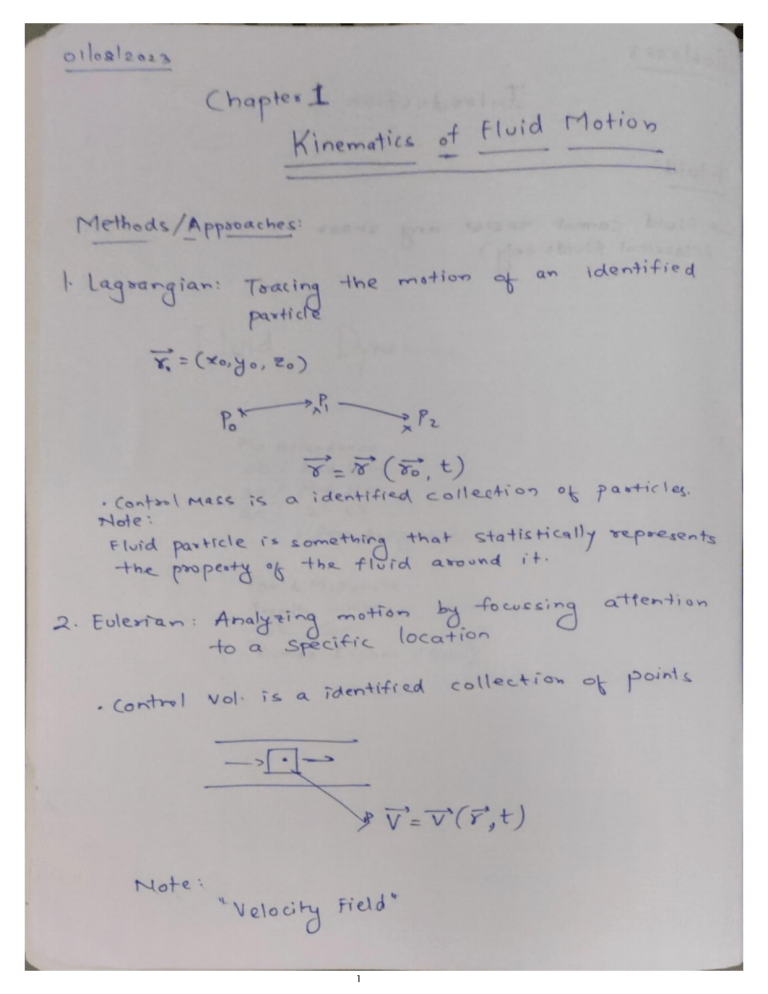 01/08/2023
Chapter 1
Kinematics of Fluid Motion
Methods/Approaches:
1. Lagrangian: Tracing the motion of an identified
particle
r₀ = (x₀, y₀, z₀)
P₀ P₁ P₂
r⃗ = r⃗ (r⃗₀, t)
· Control Mass is a identified collection of particles.
Note:
Fluid particle is something that statistically represents
the property of the fluid around it.
2. Eulerian: Analyzing motion by focussing attention
to a specific location
· Control vol. is a identified collection of points
V⃗ = V⃗(r⃗, t)
Note:
"Velocity Field"
1